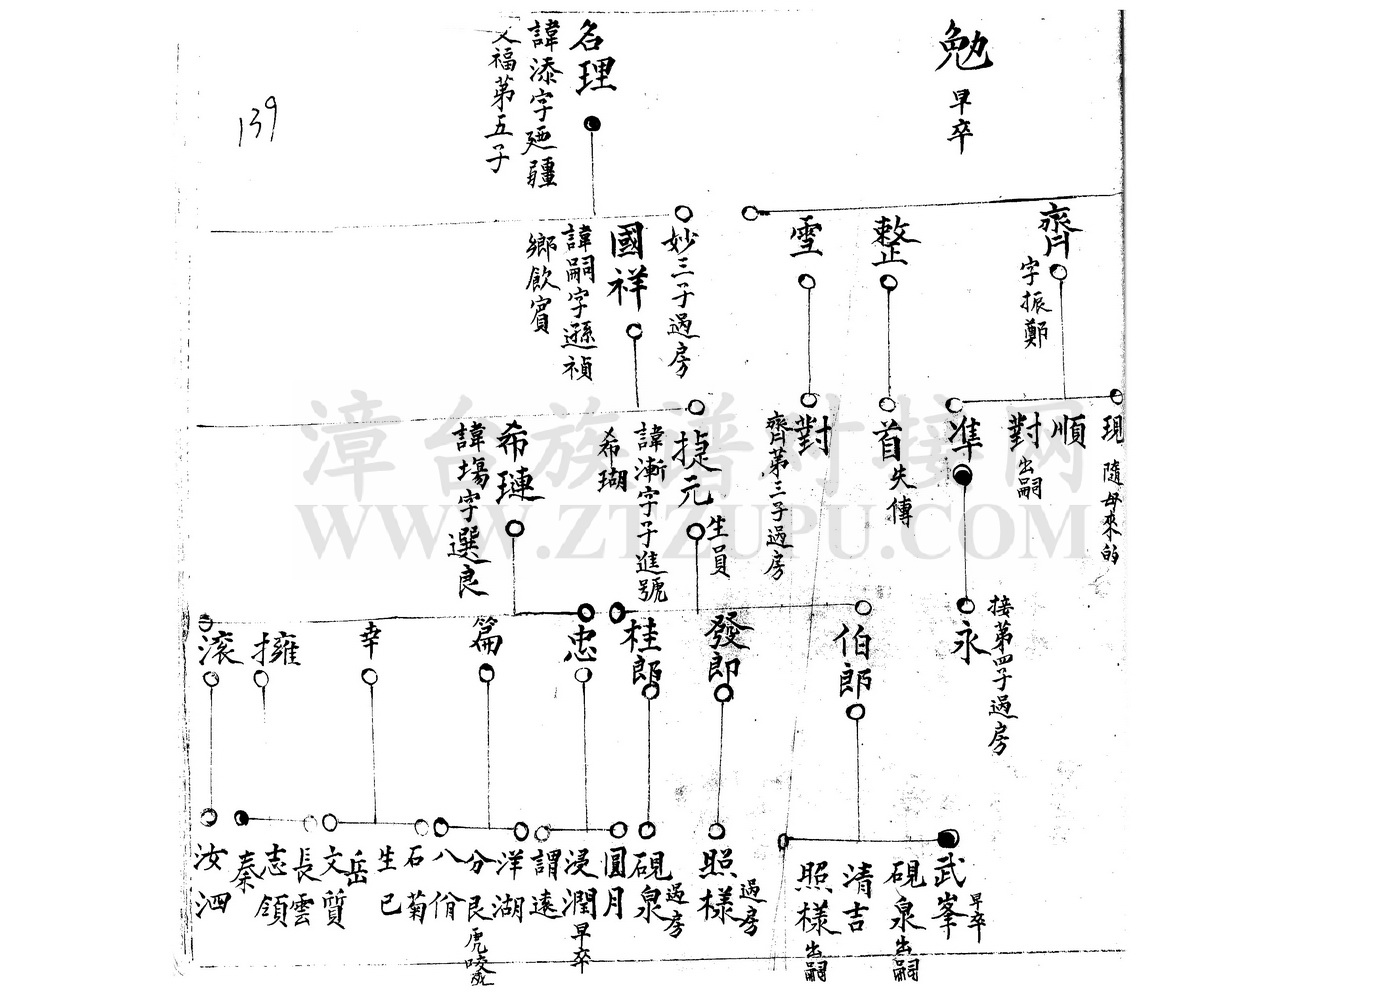 勉
早卒
名理
諱添字廼疆
文福第五子
139
齊
字振鄭
整
雪
妙三子過房
國祥
諱嗣字遜禎
鄉飲賓
現
隨母來的
順
對
出嗣
準
首
失傳
對
齊第三子過房
捷元
生員
諱漸字子進號
希瑚
希璉
諱塲字選良
漳台族谱对接网
WWW.ZTZUPU.COM
永
接第四子過房
伯郎
發郎
桂郎
忠
篇
幸
擁
滚
武峯
早卒
硯泉
出嗣
清吉
照樣
出嗣
照樣
過房
硯泉
過房
圓月
浸潤
早卒
謂遠
洋湖
分艮
虎咬死
八佾
石菊
生已
岳
文質
長雲
志領
秦
汝泗